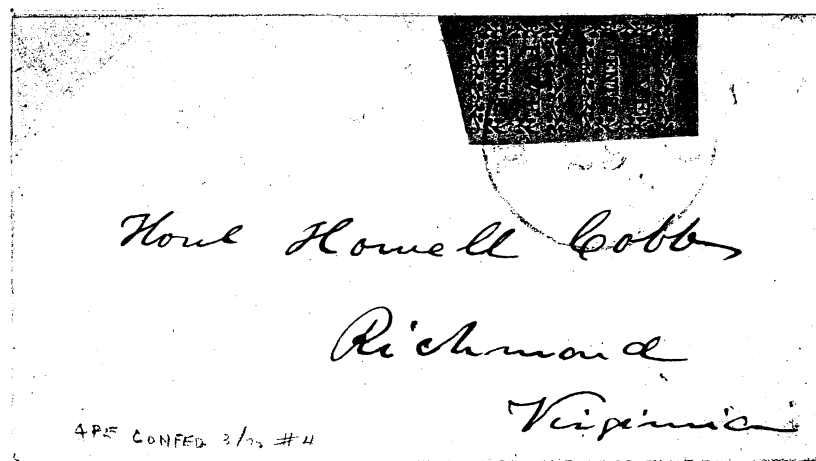 Honl Howell Cobb
Richmond
Virginia
CONFED 3/ #4